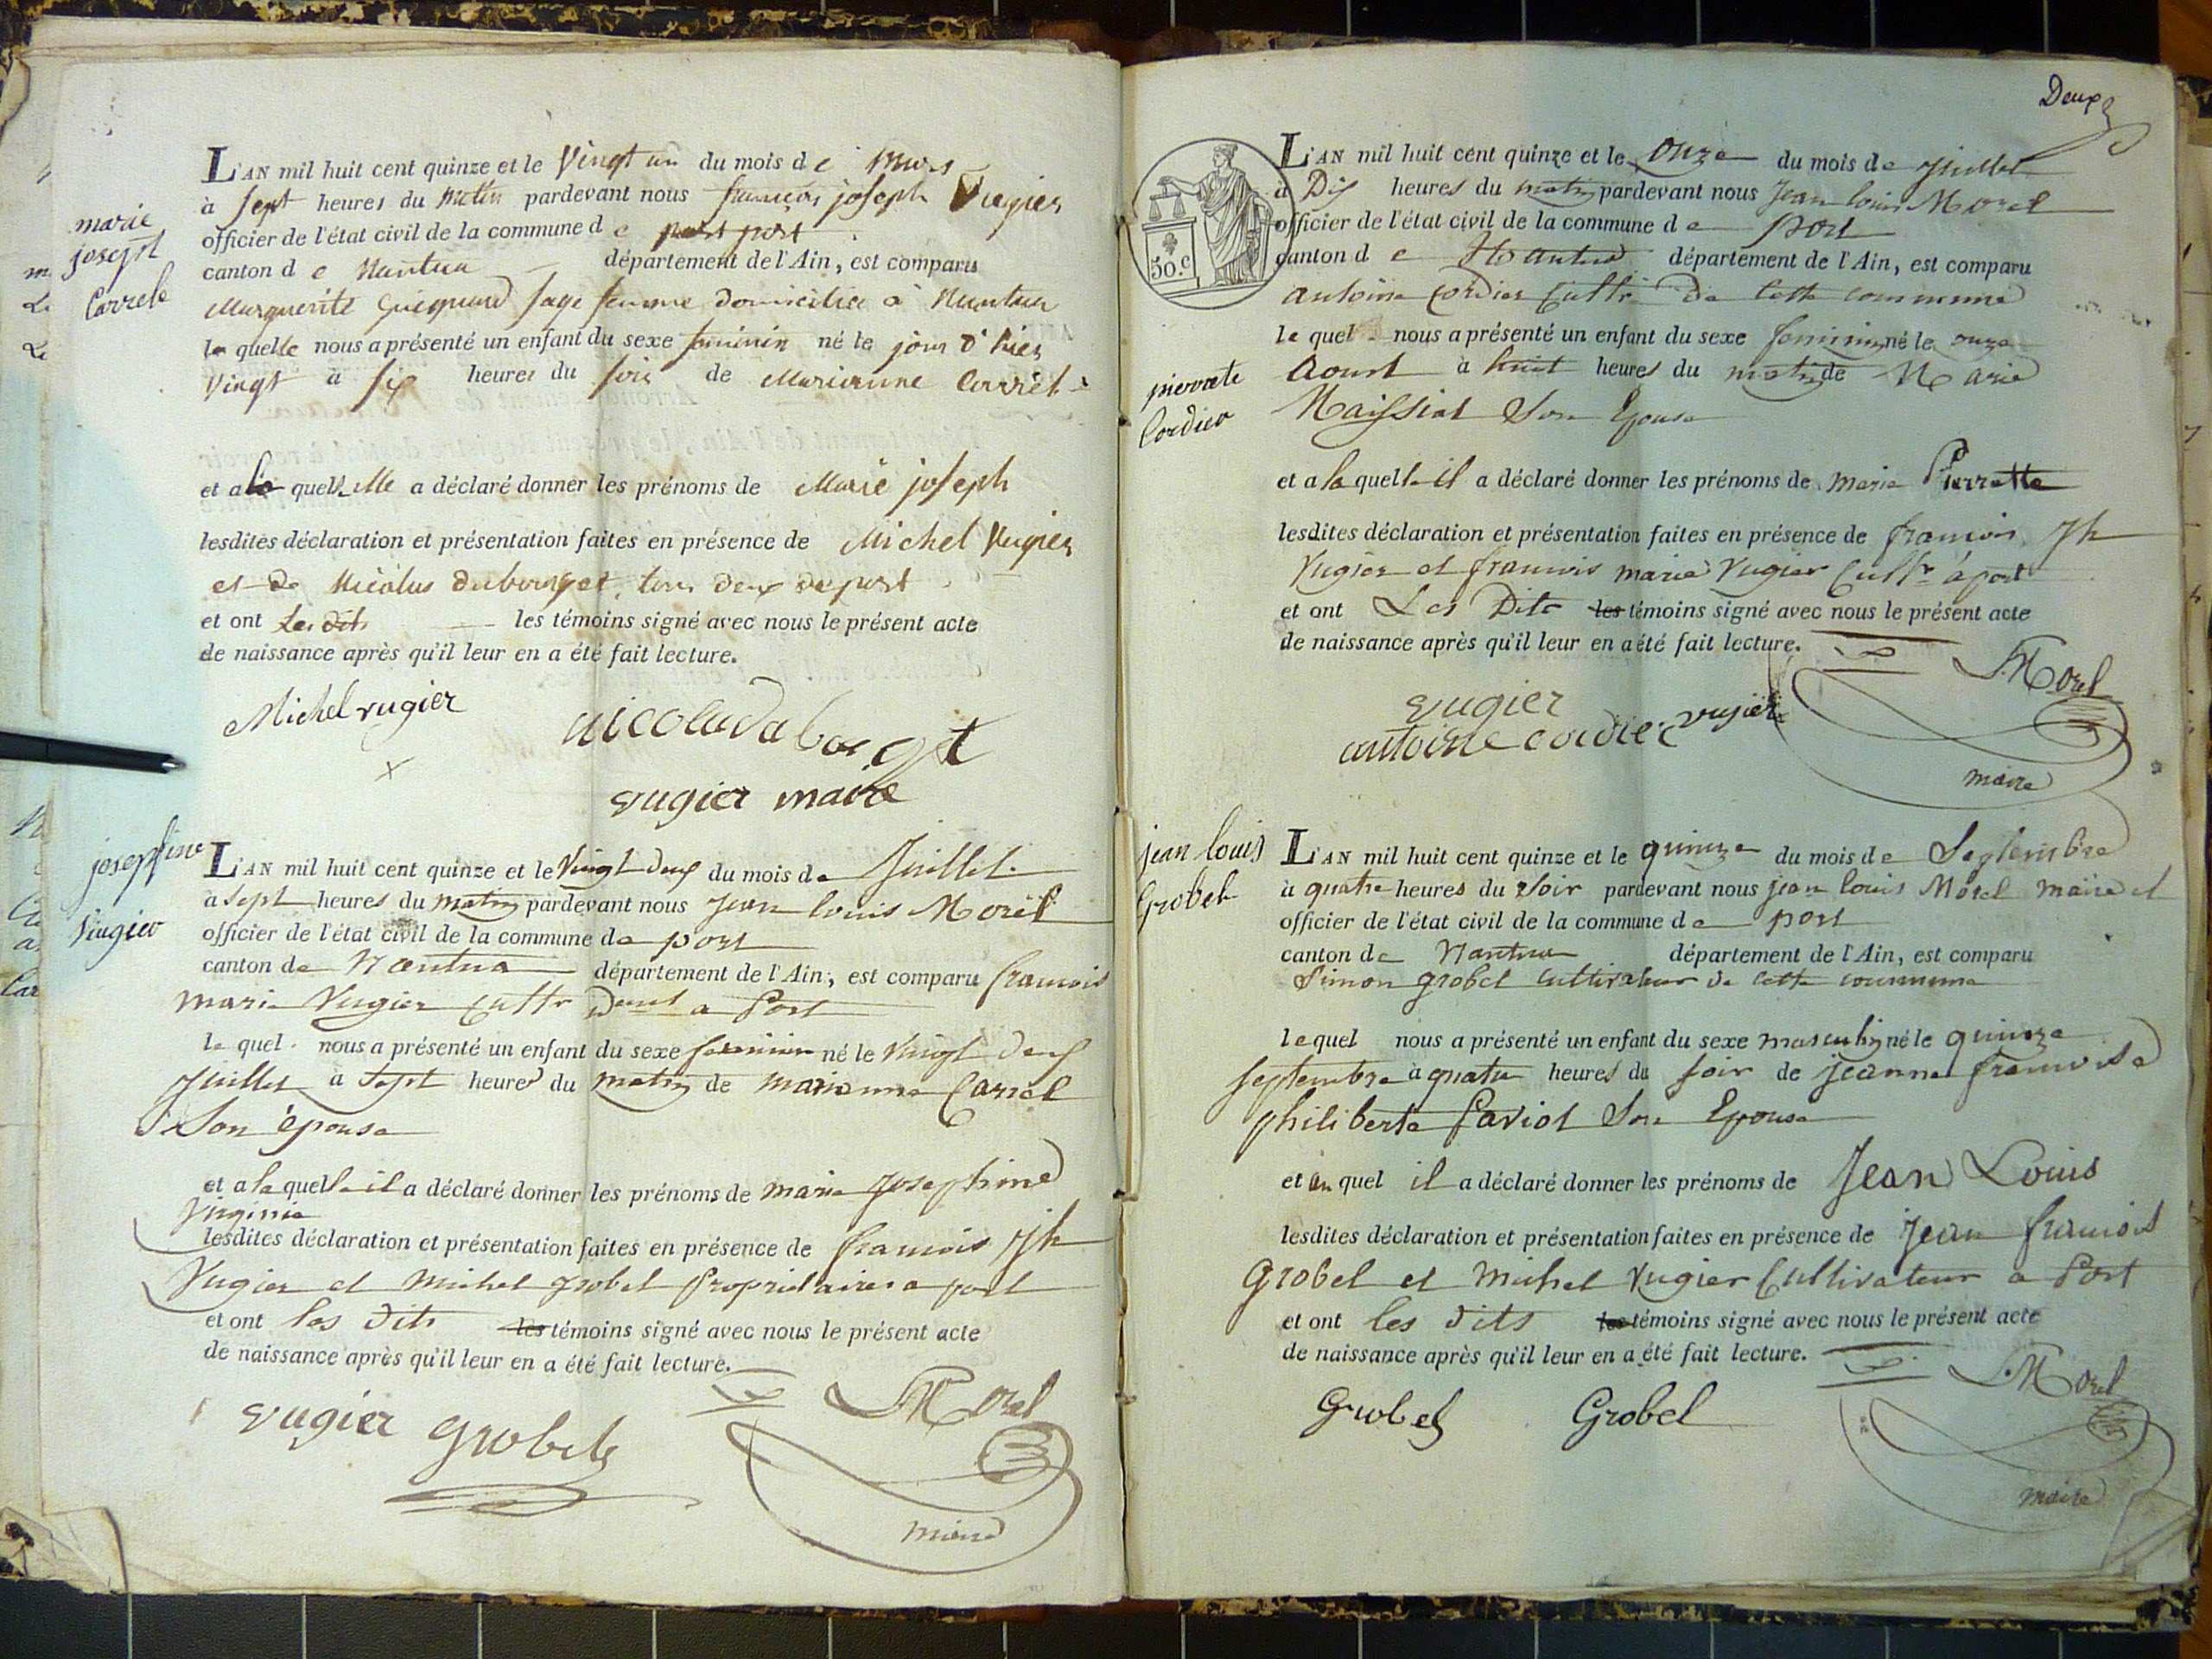 marie
joseph
Carrel
L'AN mil huit cent quinze et le vingt un du mois de Mars
à sept heures du matin pardevant nous françois joseph Vugier
officier de l'état civil de la commune de port
canton de Nantua département de l'Ain, est comparu
Marguerite sage femme domiciliée à Nantua
la quelle nous a présenté un enfant du sexe feminin né le jour d'hier
vingt à six heures du soir de Marianne Carrel
et a la quelle elle a déclaré donner les prénoms de Marie joseph
lesdites déclaration et présentation faites en présence de Michel Vugier
et de Nicolas dubourget, tous deux de port
et ont les dits les témoins signé avec nous le présent acte
de naissance après qu'il leur en a été fait lecture.
Michel vugier
vugier maire
josephine
Vugier
L'AN mil huit cent quinze et le vingt deux du mois de Juillet
à sept heures du matin pardevant nous Jean louis Morel
officier de l'état civil de la commune de port
canton de Nantua département de l'Ain, est comparu francois
marie Vugier cultr a Port
le quel nous a présenté un enfant du sexe feminin né le vingt deux
Juillet à sept heures du matin de marianne Carrel
Son épouse
et a la quelle il a déclaré donner les prénoms de marie Josephine
virginie
lesdites déclaration et présentation faites en présence de francois Jh
Vugier et michel grobel proprietaires a port
et ont les dits les témoins signé avec nous le présent acte
de naissance après qu'il leur en a été fait lecture.
vugier grobel
Morel
maire
Deux
50.c
pierrete
Cordier
L'AN mil huit cent quinze et le onze du mois de Juillet
à Dix heures du matin pardevant nous Jean louis Morel
officier de l'état civil de la commune de port
canton de Nantua département de l'Ain, est comparu
antoine cordier cultr de cette commune
le quel nous a présenté un enfant du sexe feminin né le onze
Aoust à huit heures du matin de Marie
Maissiat Son Epouse
et a la quelle il a déclaré donner les prénoms de marie Pierrette
lesdites déclaration et présentation faites en présence de francois Jh
Vugier et francois marie Vugier cultr à port
et ont Les Dits les témoins signé avec nous le présent acte
de naissance après qu'il leur en a été fait lecture.
Morel
vugier
antoine cordier vugier
maire
jean louis
Grobel
L'AN mil huit cent quinze et le quinze du mois de Septembre
à quatre heures du soir pardevant nous jean louis Morel maire et
officier de l'état civil de la commune de port
canton de Nantua département de l'Ain, est comparu
Simon grobel cultivateur de cette commune
le quel nous a présenté un enfant du sexe masculin né le quinze
septembre à quatre heures du soir de jeanne francoise
philiberte Son Epouse
et au quel il a déclaré donner les prénoms de Jean Louis
lesdites déclaration et présentation faites en présence de Jean francois
grobel et michel Vugier Cultivateur a Port
et ont les dits les témoins signé avec nous le présent acte
de naissance après qu'il leur en a été fait lecture.
Morel
Grobel Grobel
maire